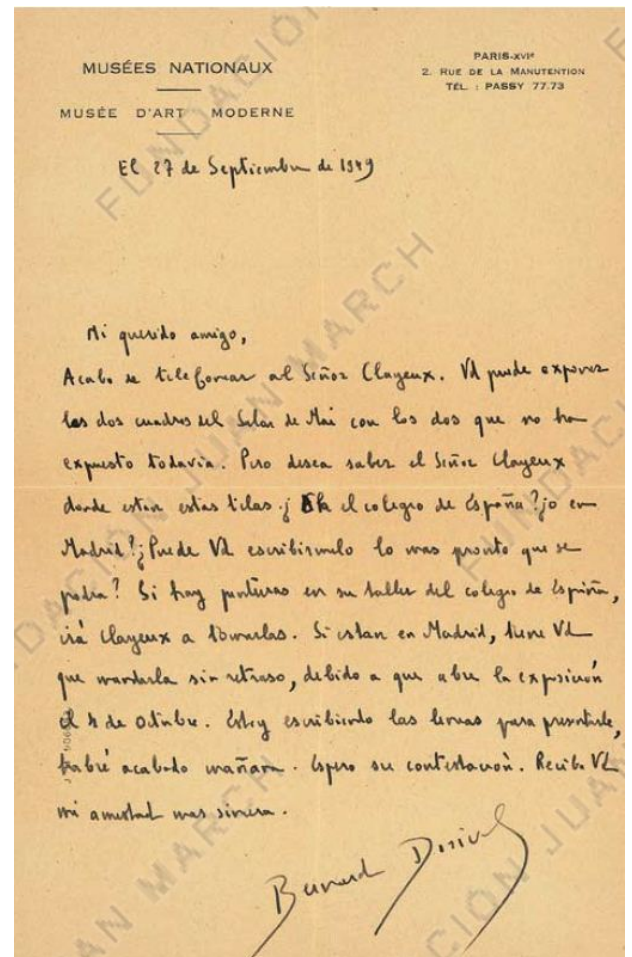 MUSÉES NATIONAUX
MUSÉE D'ART MODERNE
PARIS-XVIe
2. RUE DE LA MANUTENTION
TÉL. : PASSY 77.73
El 27 de Septiembre de 1949
Mi querido amigo,
Acabo de telefonear al Señor Clayeux. Vd puede exponer
los dos cuadros del Salon de Mai con los dos que no ha
expuesto todavia. Pero desea saber el Señor Clayeux
donde estan estas telas. ¿ En el colegio de España? ¿o en
Madrid? ¿Puede Vd escribirmelo lo mas pronto que se
podra? Si hay pinturas en su taller del colegio de España,
irá Clayeux a tomarlas. Si estan en Madrid, tiene Vd
que mandarla sin retraso, debido a que abre la exposición
el 4 de Octubre. Estoy escribiendo las lineas para presentarle,
habré acabado mañana. Espero su contestación. Recibe Vd
mi amistad mas sincera.
Bernard Dorival
FUNDACIÓN JUAN MARCH